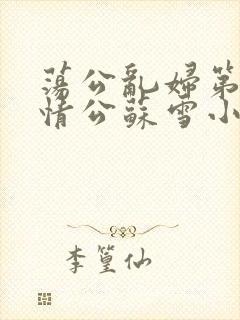 蕩公亂婦第
情公蘇雪小
李篁仙